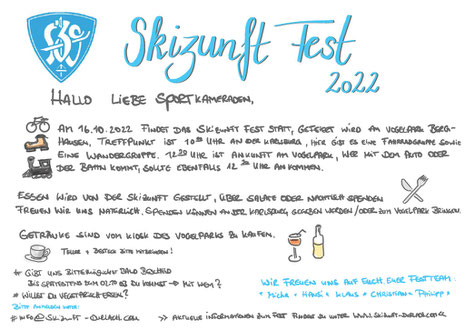 Skizunft Fest
2022
HALLO LIEBE SPORTKAMERADEN,
AM 16.10.2022 FINDET DAS SKIZUNFT FEST STATT, GEFEIERT WIRD AM VOGELPARK BERG-
HAUSEN, TREFFPUNKT IST 10 UHR AN DER KARLSBURG, HIER GIBT ES EINE FAHRRADGRUPPE SOWIE
EINE WANDERGRUPPE. 12.30 UHR IST ANKUNFT AM VOGELPARK, WER MIT DEM AUTO ODER
DER BAHN KOMMT, SOLLTE EBENFALLS 12.30 UHR ANKOMMEN.
ESSEN WIRD VON DER SKIZUNFT GESTELLT, ÜBER SALATE ODER NACHTISCH SPENDEN
FREUEN WIR UNS NATÜRLICH. SPENDEN KÖNNEN AN DER KARLSBURG GEGEBEN WERDEN / ODER ZUM VOGELPARK BRINGEN.
GETRÄNKE SIND VOM KIOSK DES VOGELPARKS ZU KAUFEN.
TELLER + BESTECK BITTE MITBRINGEN!
* GIBT UNS BITTE MÖGLICHST BALD BESCHEID
BIS SPÄTESTENS ZUM OB DU KOMMST → MIT WEM?
* WILLST DU VEGETARISCH ESSEN?
BITTE ANMELDEN UNTER:
* INFO@SKIZUNFT-DURLACH.COM
WIR FREUEN UNS AUF EUCH EUER FESTTEAM:
* Micha + Hansi + Klaus + Christian + Philipp *
>> AKTUELLE INFORMATIONEN ZUM FEST FINDEST DU UNTER WWW.SKIZUNFT-DURLACH.COM